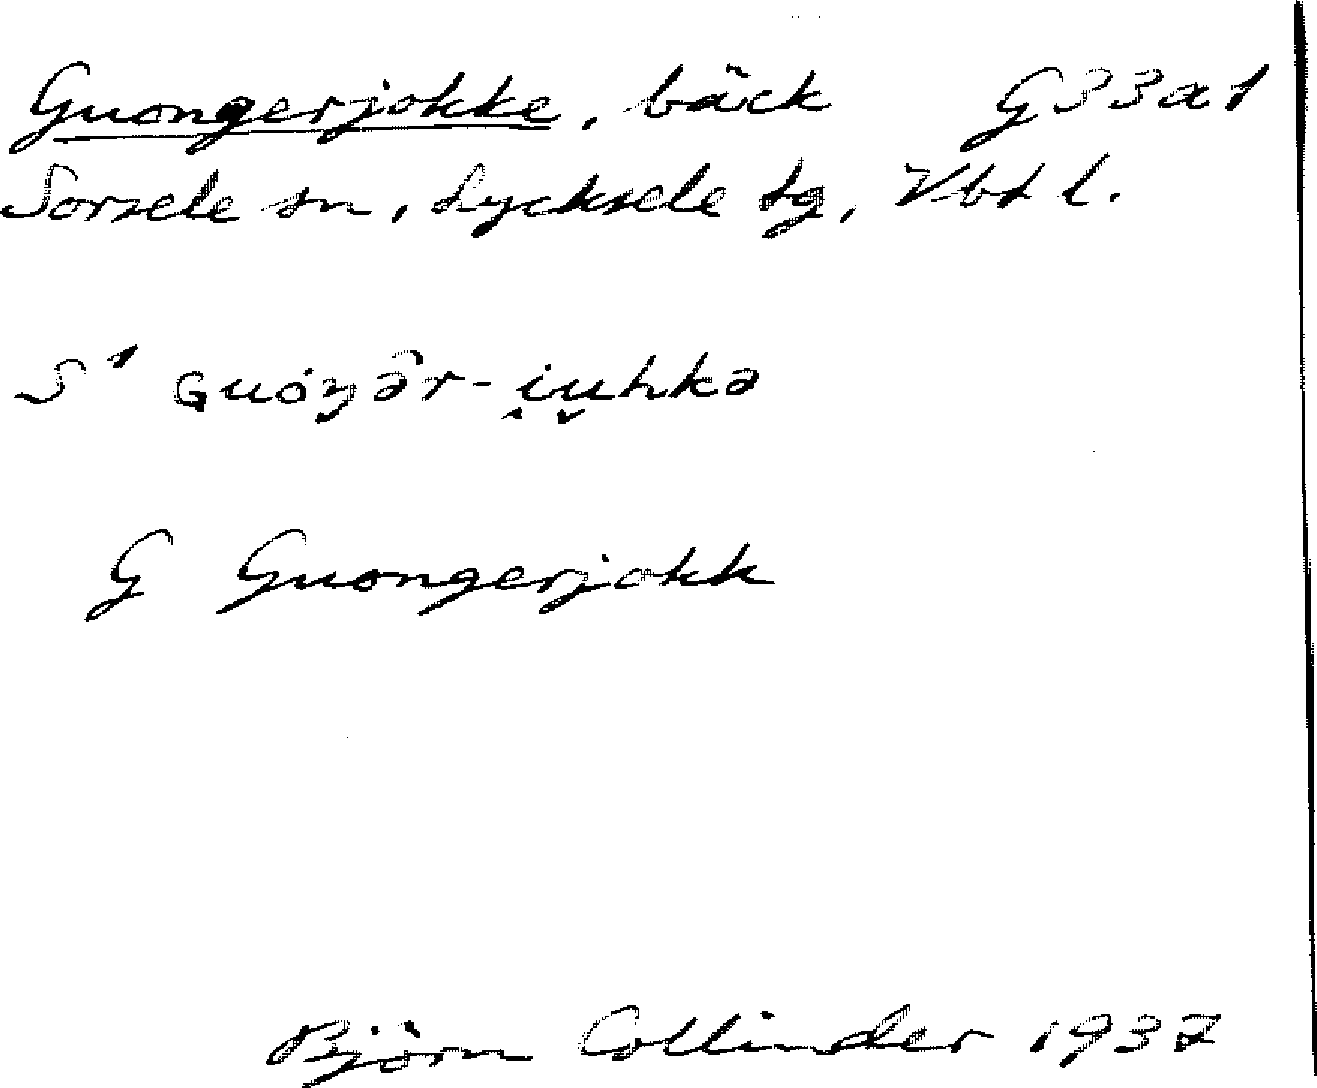 Guongerjokke, bäck G33a1
Sorsele sn, Lycksele tg, Vbt l.
S¹ ɢuóŋə̑r-i̭u̬hkə
G Guongerjokk
Björn Collinder 1937